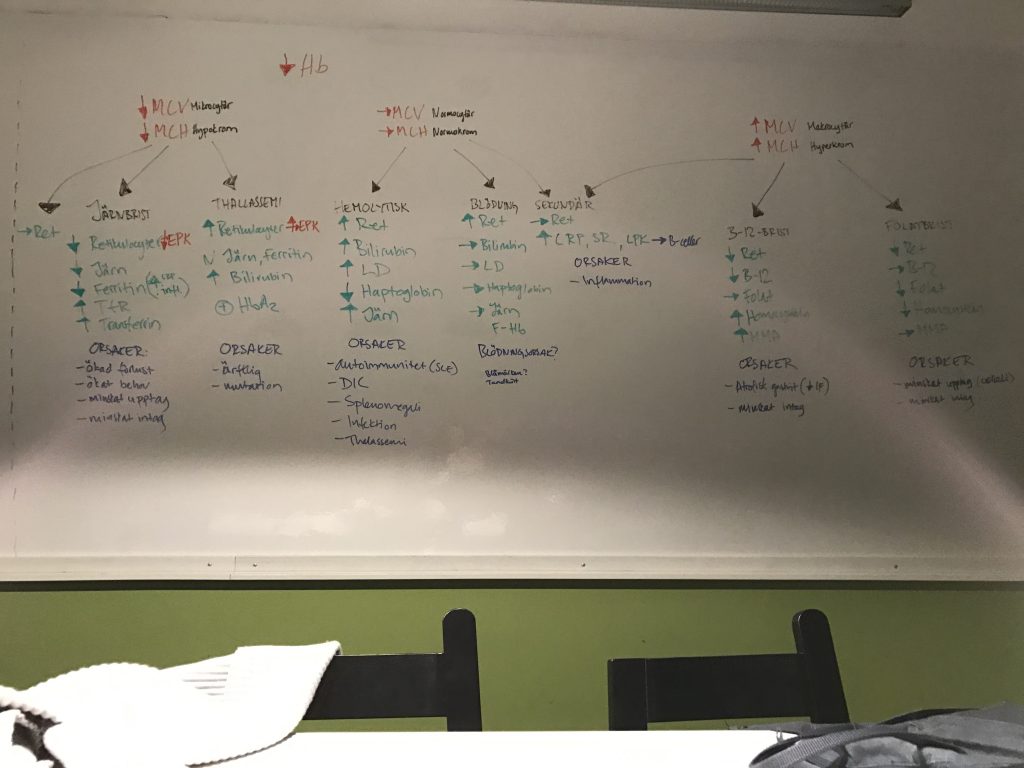 ↓ Hb
↓ MCV Mikrocytär
↓ MCH Hypokrom
→ MCV Normocytär
→ MCH Normokrom
↑ MCV Makrocytär
↑ MCH Hyperkrom
→ Ret
JÄRNBRIST
↓ Retikulocyter ↓EPK
↓ Järn
↓ Ferritin (↑ CRP infl.)
↑ TfR
↑ Transferrin
ORSAKER:
- ökad förlust
- ökat behov
- minskat upptag
- minskat intag
THALLASSEMI
↑ Retikulocyter EPK
N Järn, ferritin
↑ Bilirubin
+ HbA2
ORSAKER
- ärftlig
- mutation
HEMOLYTISK
↑ Ret
↑ Bilirubin
↑ LD
↓ Haptoglobin
↑ Järn
ORSAKER
- autoimmunitet (SLE)
- DIC
- Splenomegali
- Infektion
- Thalassemi
BLÖDNING
↑ Ret
→ Bilirubin
→ LD
→ Haptoglobin
→ Järn
F-Hb
BLÖDNINGSORSAK?
Blåmärken?
Tandkött
SEKUNDÄR
→ Ret
↑ CRP, SR, LPK → B-celler
ORSAKER
- Inflammation
B-12-BRIST
↓ Ret
↓ B-12
→ Folat
↑ Homocystein
↑ MMA
ORSAKER
- Atrofisk gastrit (↓ IF)
- minskat intag
FOLATBRIST
↓ Ret
→ B-12
↓ Folat
↓ Homocystein
→ MMA
ORSAKER
- minskat upptag (celiaki)
- minskat intag